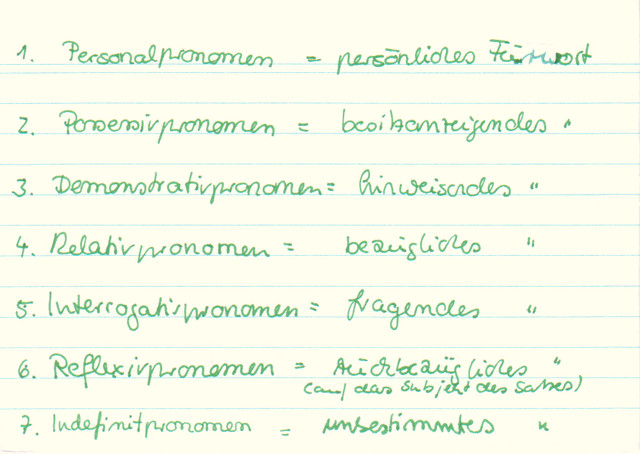 1. Personalpronomen = persönliches Fürwort
2. Possessivpronomen = besitzanzeigendes "
3. Demonstrativpronomen = hinweisendes "
4. Relativpronomen = bezügliches "
5. Interrogativpronomen = fragendes "
6. Reflexivpronomen = rückbezügliches "
(auf das Subjekt des Satzes)
7. Indefinitpronomen = unbestimmtes "